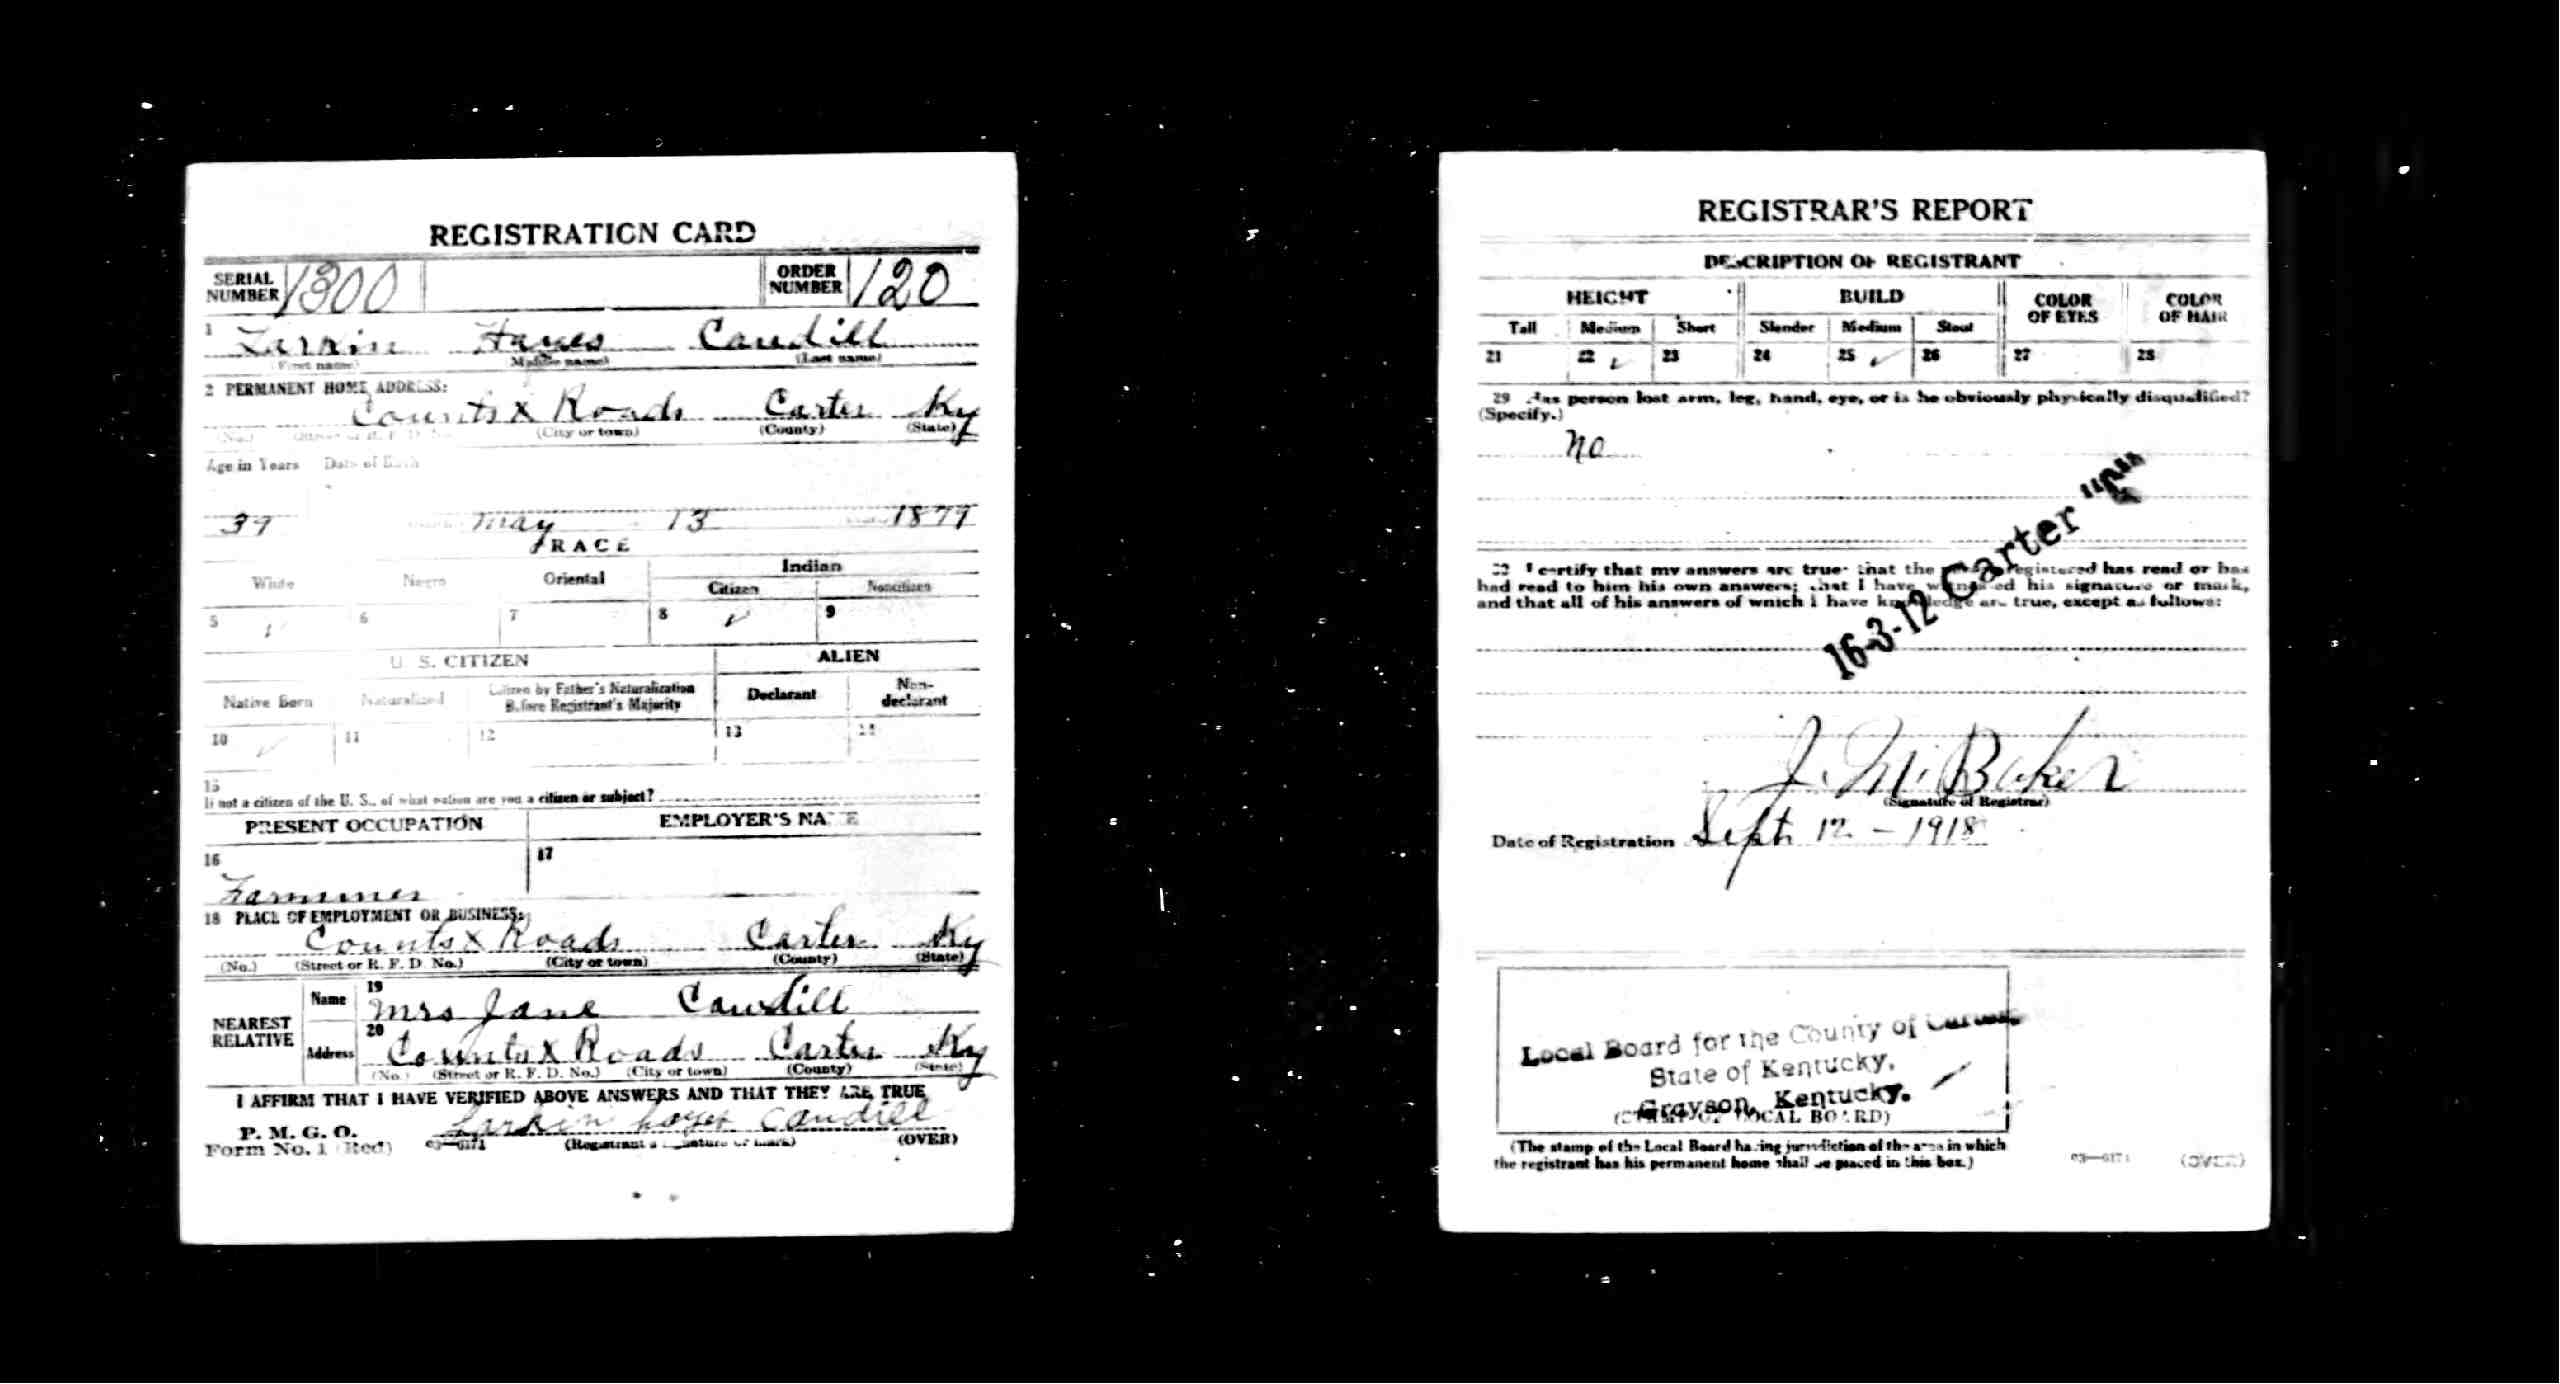 REGISTRATION CARD
SERIAL NUMBER 1300 ORDER NUMBER 120
1 Larkin Hayes Caudill
(First name) (Middle name) (Last name)
2 PERMANENT HOME ADDRESS:
Counts X Roads Carter Ky
(No.) (City or town) (County) (State)
Age in Years Date of Birth
39 May 13 1879
RACE
White Negro Oriental Indian
Citizen Noncitizen
5 ✓ 6 7 8 ✓ 9
U. S. CITIZEN ALIEN
Native Born Naturalized Citizen by Father's Naturalization Before Registrant's Majority Declarant Non-declarant
10 ✓ 11 12 13 14
15
If not a citizen of the U. S., of what nation are you a citizen or subject?
PRESENT OCCUPATION EMPLOYER'S NAME
16 17
Farmmer
18 PLACE OF EMPLOYMENT OR BUSINESS:
Counts X Roads Carter Ky
(No.) (Street or R. F. D. No.) (City or town) (County) (State)
NEAREST RELATIVE
Name 19 Mrs Jane Caudill
Address 20 Counts X Roads Carter Ky
(No.) (Street or R. F. D. No.) (City or town) (County) (State)
I AFFIRM THAT I HAVE VERIFIED ABOVE ANSWERS AND THAT THEY ARE TRUE
P. M. G. O. Larkin Caudill
Form No. 1 (Red) 03—6171 (Registrant's signature or mark) (OVER)
REGISTRAR'S REPORT
DESCRIPTION OF REGISTRANT
HEIGHT BUILD COLOR OF EYES COLOR OF HAIR
Tall Medium Short Slender Medium Stout
21 22 ✓ 23 24 25 ✓ 26 27 28
29 Has person lost arm, leg, hand, eye, or is he obviously physically disqualified?
(Specify.)
No
16-3-12 Carter
I certify that my answers are true; that the person registered has read or has
had read to him his own answers; that I have witnessed his signature or mark,
and that all of his answers of which I have knowledge are true, except as follows:
J. M. Baker
(Signature of Registrar)
Date of Registration Sept. 12 - 1918
Local Board for the County of Carter,
State of Kentucky,
Grayson, Kentucky.
(STAMP OF LOCAL BOARD)
(The stamp of the Local Board having jurisdiction of the area in which
the registrant has his permanent home shall be placed in this box.)
03—6171 (OVER)